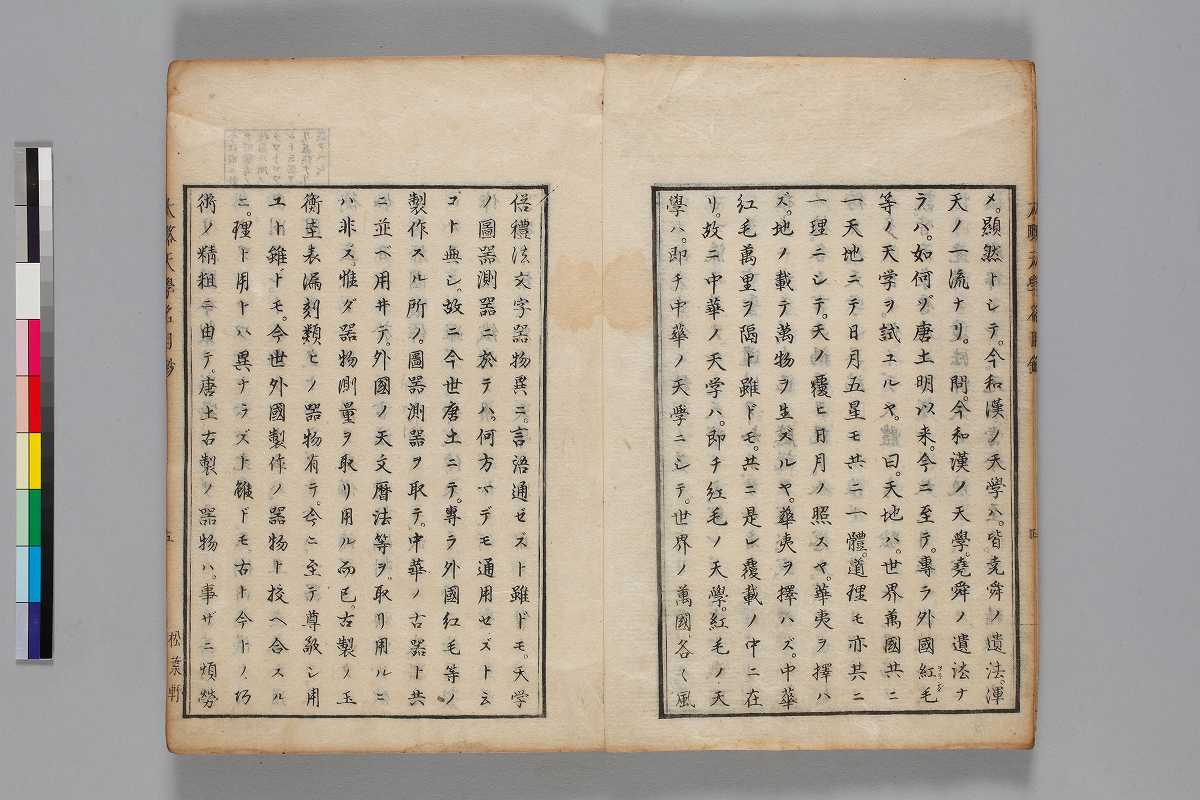 メ。顕然トシテ。今和漢ノ天學ハ。皆堯舜ノ遺法。渾
天ノ一流ナリ。問。今和漢ノ天學。堯舜ノ遺法ナ
ラハ。如何ゾ唐土明以来。今ニ至テ。專ラ外國紅毛
ヲランダ
等ノ天学ヲ試ユルヤ。曰。天地ハ。世界萬國共ニ
一天地ニテ日月五星モ共ニ一體。道理モ亦共ニ
一理ニシテ。天ノ覆ヒ日月ノ照スヤ。華夷ヲ擇ハ
ズ。地ノ載テ萬物ヲ生ズルヤ。華夷ヲ擇ハズ。中華
紅毛萬里ヲ隔ト雖ドモ。共ニ是レ覆載ノ中ニ在
リ。故ニ中華ノ天学ハ。即チ紅毛ノ天學。紅毛ノ天
學ハ。即チ中華ノ天學ニシテ。世界ノ萬國各〻風
俗禮法文字器物異ニ。言語通ゼズト雖ドモ。天学
ノ圖器測器ニ於テハ。何方マデモ通用セズト云
コト無シ。故ニ今世唐土ニテ。專ラ外國紅毛等ノ
製作スル所ノ。圖器測器ヲ取テ。中華ノ古器ト共
ニ並ベ用井テ。外國ノ天文暦法等ヲ。取リ用ルニ
ハ非ズ。惟ダ器物測量ヲ取リ用ル而已。古製ノ玉
衡圭表漏刻類ヒノ器物有テ。今ニ至テ尊敬シ用
ユト雖ドモ。今世外國製作ノ器物ト校ヘ合スル
ニ。理ト用トハ異ナラズト雖ドモ、古ト今トノ巧
術ノ精粗ニ由テ。唐土古製ノ器物ハ。事ザニ煩勞
天學名目鈔
五
松葉軒